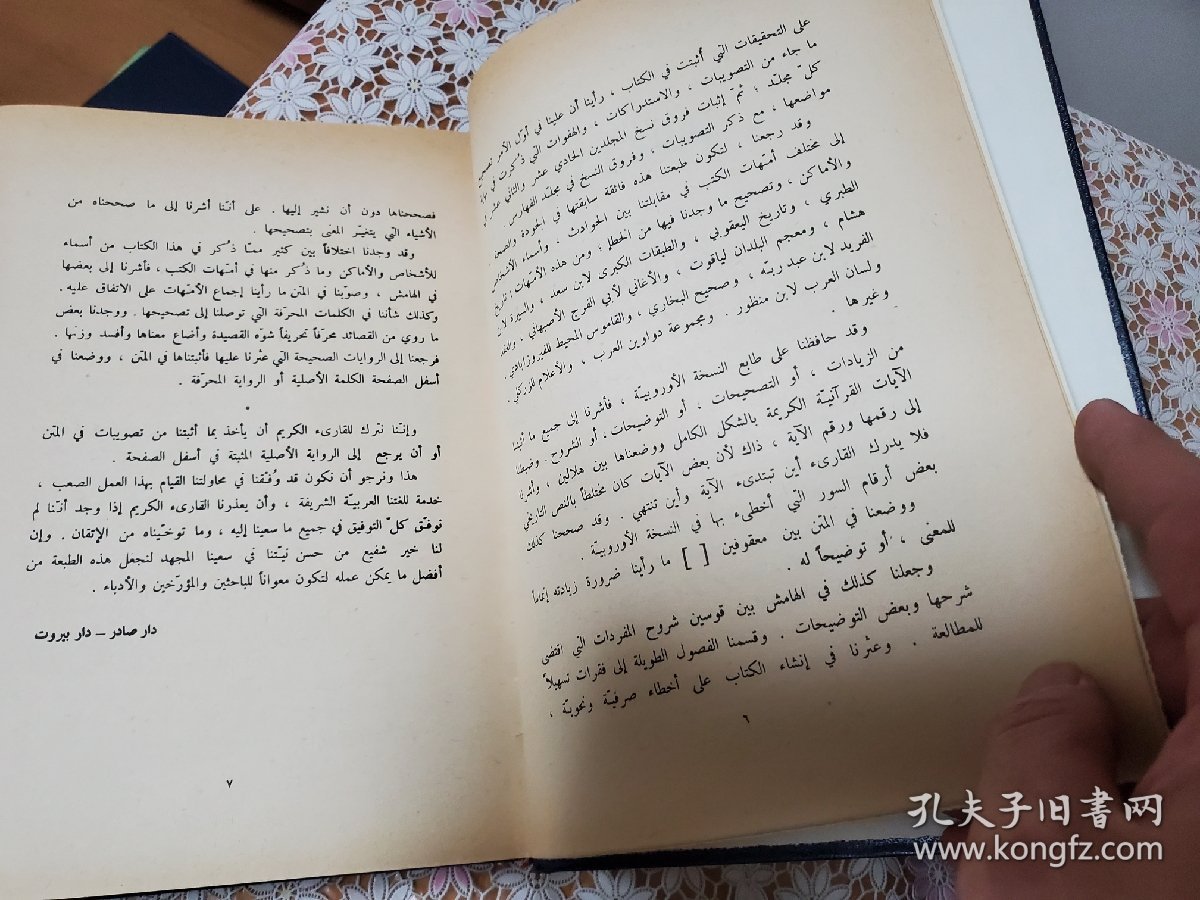 على التحقيقات التي أثبتت في الكتاب ، رأينا أن علينا في أوّل الأمر تصحيح
ما جاء من التصويبات ، والاستدراكات ، والهفوات التي ذُكرت في
كلّ مجلّد ؛ ثمّ إثبات فروق نسخ المجلدين الحادي عشر والثاني عشر في
مواضعها ، مع ذكر التصويبات ، وفروق النسخ في مجلّد الفهارس .
وقد رجعنا ، لتكون طبعتنا هذه فائقة سابقتها في الجودة والصحة
إلى مختلف أمّهات الكتب في مقابلتنا بين الحوادث ، وأسماء الأشخاص
والأماكن ، وتصحيح ما وجدنا فيها من الخطإ ؛ ومن هذه الأمّهات : تاريخ
الطبري ، وتاريخ اليعقوبي ، والطبقات الكبرى لابن سعد ، والسيرة لابن
هشام ، ومعجم البلدان لياقوت ، والأغاني لأبي الفرج الأصبهاني ، والعقد
الفريد لابن عبد ربّه ، وصحيح البخاري ، والقاموس المحيط للفيروزابادي ،
ولسان العرب لابن منظور . ومجموعة دواوين العرب ، والأعلام للزركلي ،
وغيرها .
وقد حافظنا على طابع النسخة الأوروبيّة ، فأشرنا إلى جميع ما أثبتنا
من الزيادات ، أو التصحيحات ، أو التوضيحات ، أو الشروح . وضبطنا
الآيات القرآنيّة الكريمة بالشكل الكامل ووضعناها بين هلالين ، وأشرنا
إلى رقمها ورقم الآية ، ذاك لأن بعض الآيات كان مختلطاً بالنص التاريخي
فلا يدرك القارىء أين تبتدىء الآية وأين تنتهي . وقد صححنا كذلك
بعض أرقام السور التي أخطىء بها في النسخة الأوروبيّة .
ووضعنا في المتن بين معقوفين [ ] ما رأينا ضرورة زيادته إتماماً
للمعنى ، أو توضيحاً له .
وجعلنا كذلك في الهامش بين قوسين شروح المفردات التي اقتضى
شرحها وبعض التوضيحات . وقسمنا الفصول الطويلة إلى فقرات تسهيلاً
للمطالعة . وعثرنا في إنشاء الكتاب على أخطاء صرفيّة ونحويّة ،
٦
فصححناها دون أن نشير إليها . على أنّنا أشرنا إلى ما صححناه من
الأشياء التي يتغيّر المعنى بتصحيحها .
وقد وجدنا اختلافاً بين كثير ممّا ذُكر في هذا الكتاب من أسماء
للأشخاص والأماكن وما ذُكر منها في أمّهات الكتب ، فأشرنا إلى بعضها
في الهامش ، وصوّبنا في المتن ما رأينا إجماع الأمّهات على الاتفاق عليه .
وكذلك شأننا في الكلمات المحرّفة التي توصلنا إلى تصحيحها . ووجدنا بعض
ما روي من القصائد محرّفاً تحريفاً شوّه القصيدة وأضاع معناها وأفسد وزنها .
فرجعنا إلى الروايات الصحيحة التي عثرنا عليها فأثبتناها في المتن ، ووضعنا في
أسفل الصفحة الكلمة الأصلية أو الرواية المحرّفة .
وإنّنا نترك للقارىء الكريم أن يأخذ بما أثبتنا من تصويبات في المتن
أو أن يرجع إلى الرواية الأصلية المثبتة في أسفل الصفحة .
هذا ونرجو أن نكون قد وُفّقنا في محاولتنا القيام بهذا العمل الصعب ،
خدمة للغتنا العربيّة الشريفة ، وأن يعذرنا القارىء الكريم إذا وجد أنّنا لم
نوفّق كلّ التوفيق في جميع ما سعينا إليه ، وما توخّيناه من الإتقان . وإن
لنا خير شفيع من حسن نيّتنا في سعينا المجهد لنجعل هذه الطبعة من
أفضل ما يمكن عمله لتكون معواناً للباحثين والمؤرّخين والأدباء .
دار صادر – دار بيروت
٧
孔夫子旧书网
www.kongfz.com